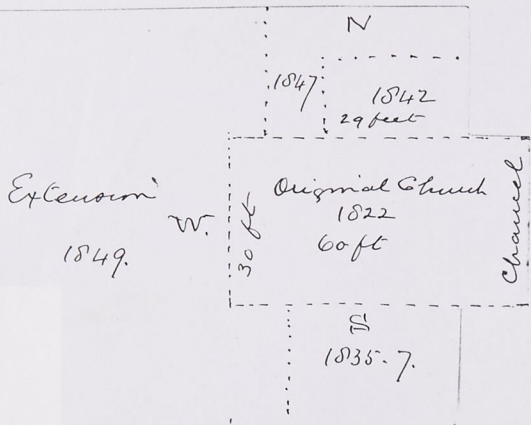 N
1847
1842
29 feet
Extension
1849.
W.
30 ft
Original Church
1822
60 ft
Chancel
S
1835-7.